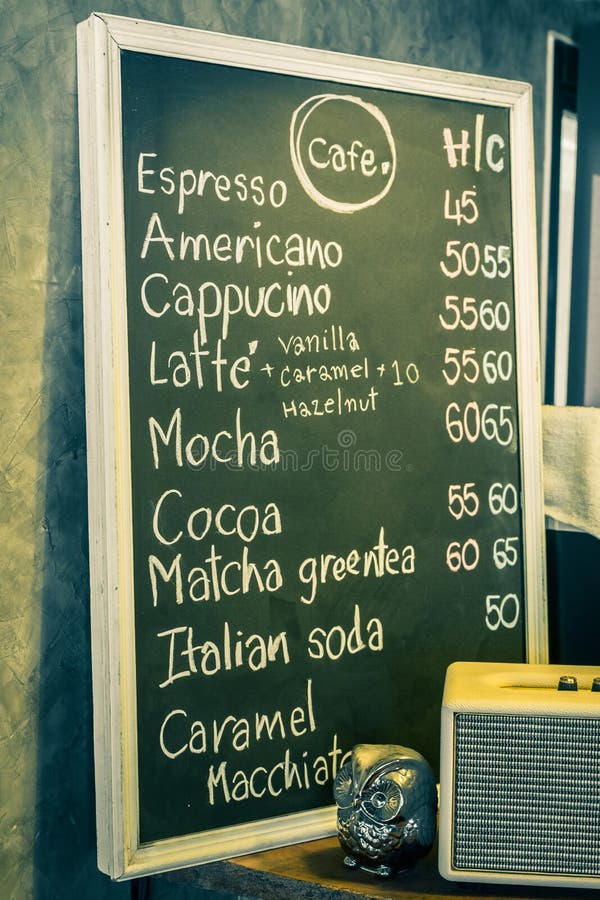 Cafe. H/C
Espresso 45
Americano 50 55
Cappucino 55 60
vanilla
Latte + caramel + 10 55 60
Hazelnut
Mocha 60 65
Cocoa 55 60
Matcha greentea 60 65
Italian soda 50
Caramel
Macchiato
dreamstime